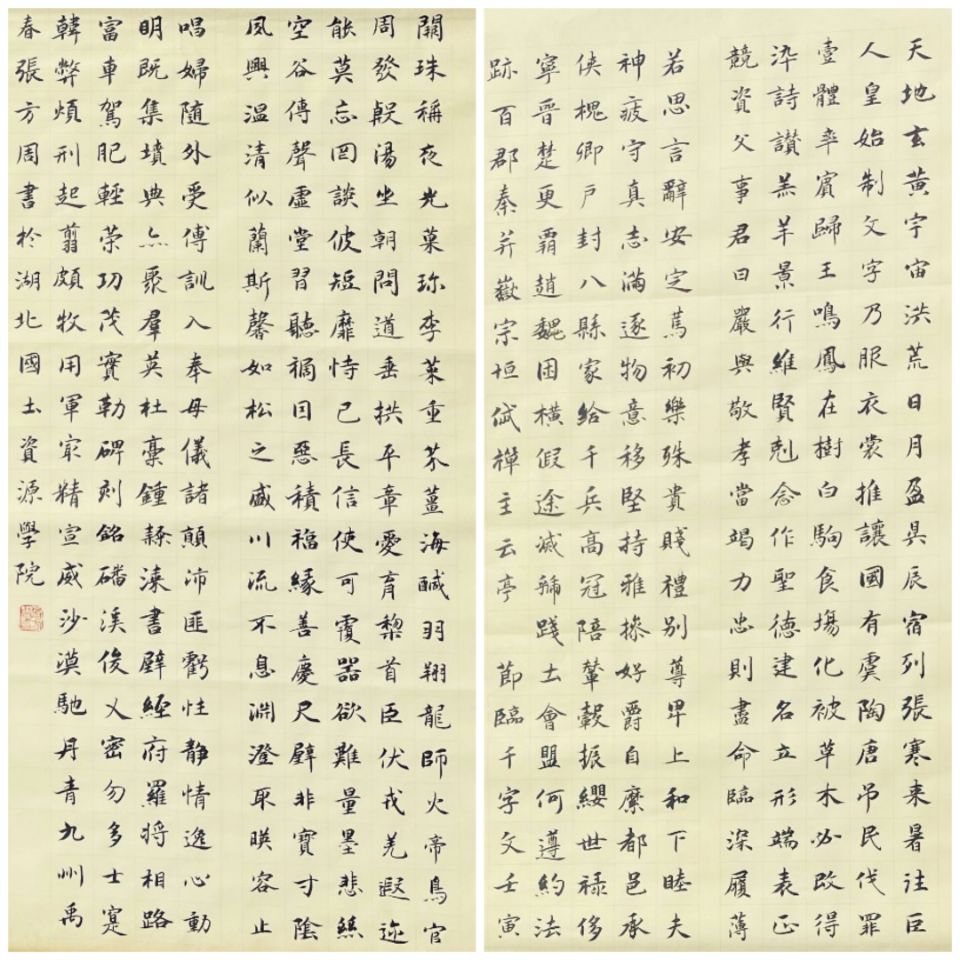 天地玄黃宇宙洪荒日月盈昃辰宿列張寒来暑往巨
人皇始制文字乃服衣裳推讓國有虞陶唐吊民伐罪
壹體率賓歸王鳴鳳在樹白駒食場化被草木必改得
染詩讚羔羊景行維賢剋念作聖德建名立形端表正
競資父事君曰嚴與敬孝當竭力忠則盡命臨深履薄
若思言辭安定篤初樂殊貴賤禮別尊卑上和下睦夫
神疲守真志滿逐物意移堅持雅操好爵自縻都邑承
侠槐卿戶封八縣家給千兵高冠陪輦轂振纓世祿侈
寧晉楚更霸趙魏困橫假途滅虢踐土會盟何遵約法
跡百郡秦并嶽宗恒岱禪主云亭 節臨千字文壬寅
闕珠稱夜光菓珍李菜重芥薑海醎羽翔龍師火帝鳥官
周發殷湯坐朝問道垂拱平章愛育黎首臣伏戎羌遐迩
能莫忘罔談彼短靡恃己長信使可覆器欲難量墨悲絲
空谷傳聲虛堂習聽禍因惡積福緣善慶尺璧非寶寸陰
夙興溫清似蘭斯馨如松之盛川流不息淵澄取暎容止
唱婦隨外受傅訓入奉母儀諸顛沛匪虧性静情逸心動
明既集墳典亦聚羣英杜稾鍾隸漆書壁經府羅將相路
富車駕肥輕策功茂實勒碑刻銘磻溪俊乂密勿多士寔
韓弊煩刑起翦頗牧用軍最精宣威沙漠馳丹青九州禹
春張方周書於湖北國土資源學院